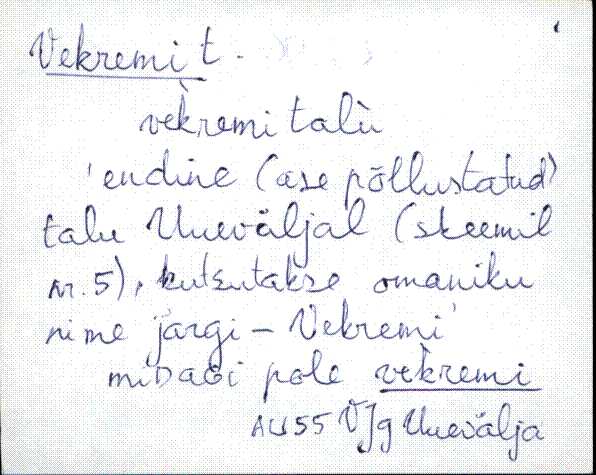 Vekremi t.
vèkremi talù
'endine (ase põllustatud)
talu Uueväljal (skeemil
nr. 5), kutsutakse omaniku
nime järgi – Vekremi'
midaɢi pole vèkremi
AU 55 VJg Uuevälja